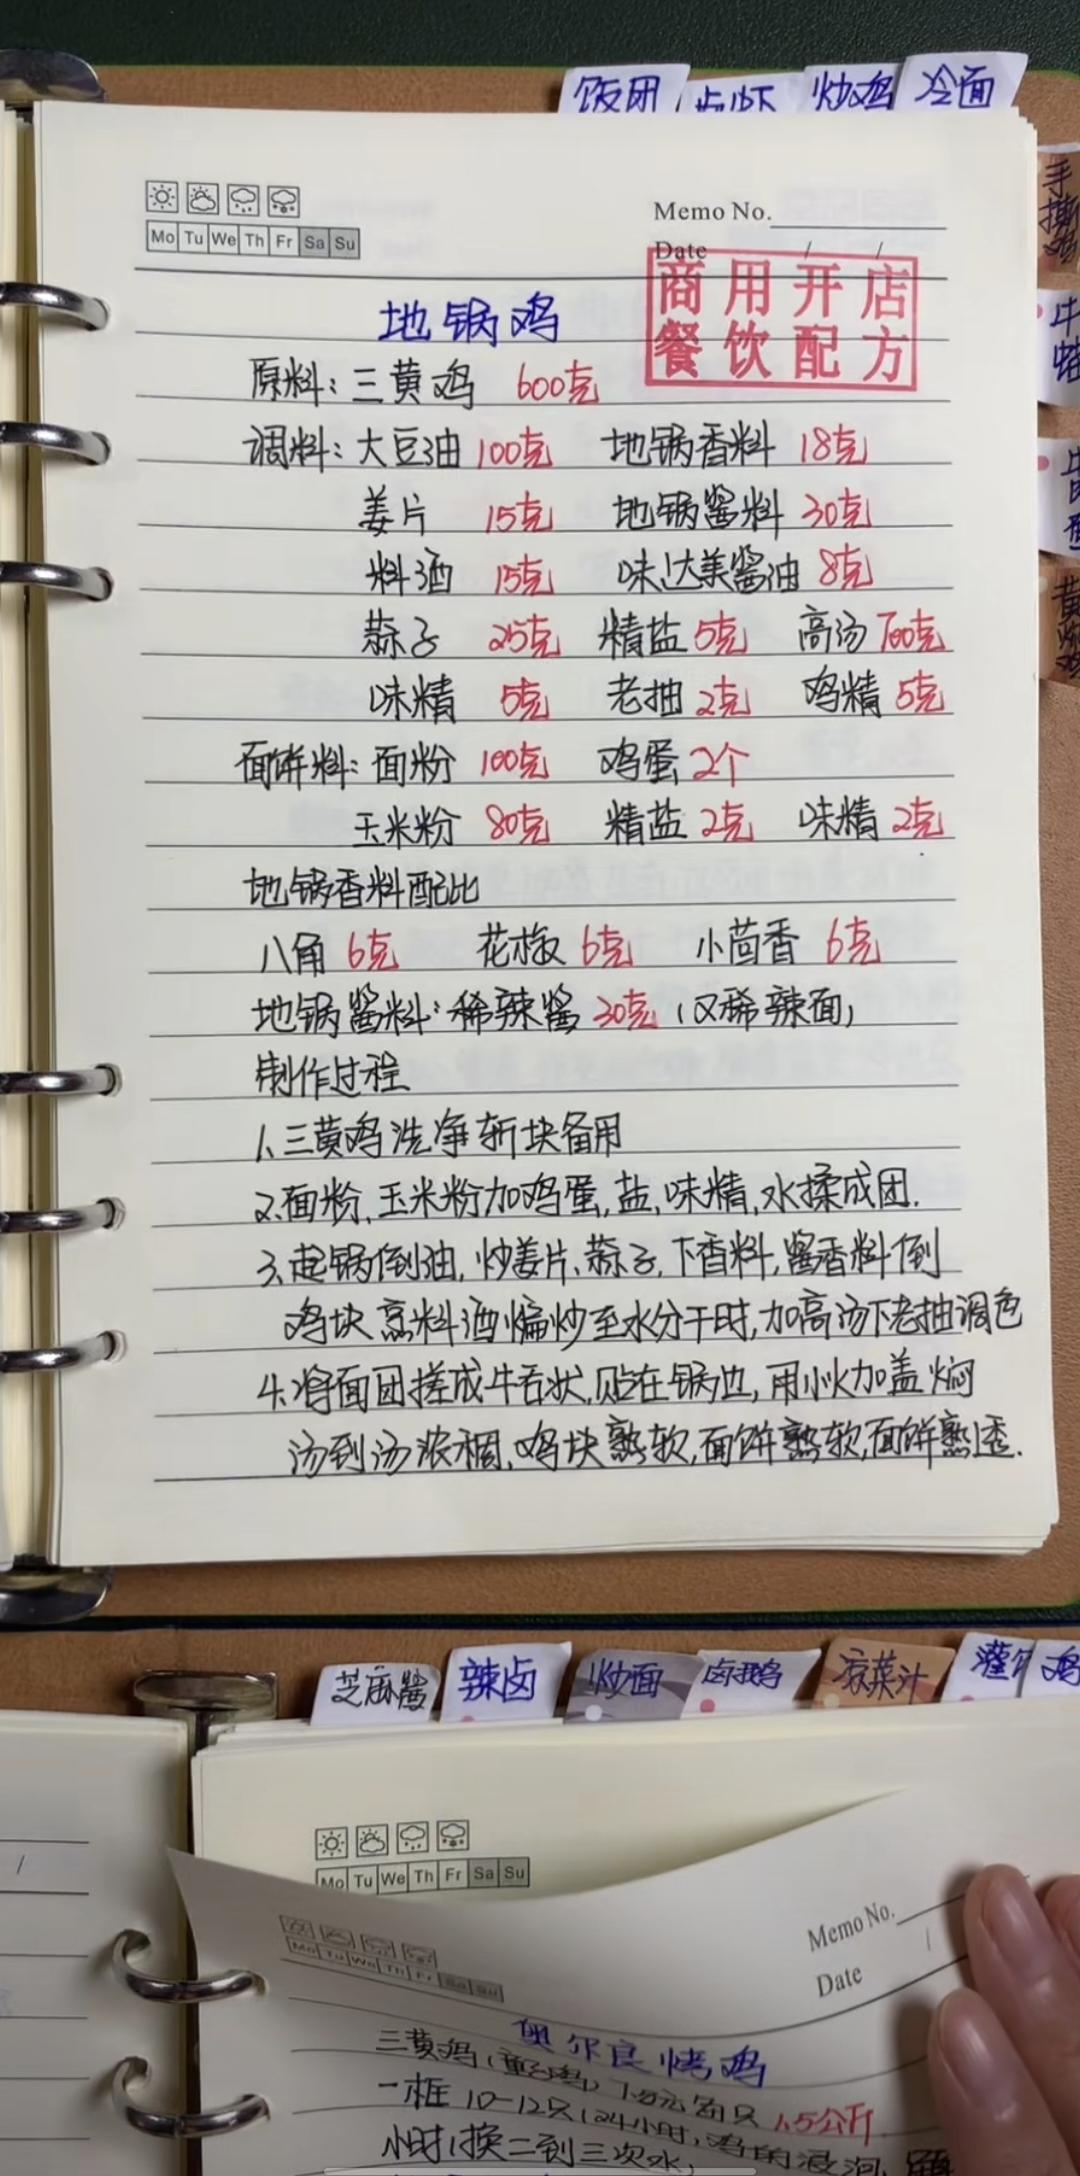 饭团 炒鸡 冷面
手撕鸡
Memo No.
Mo Tu We Th Fr Sa Su
Date / /
商用开店
餐饮配方
地锅鸡
原料:三黄鸡 600克
调料:大豆油 100克 地锅香料 18克
姜片 15克 地锅酱料 30克
料酒 15克 味达美酱油 8克
蒜子 25克 精盐 5克 高汤 700克
味精 5克 老抽 2克 鸡精 5克
面饼料:面粉 100克 鸡蛋 2个
玉米粉 80克 精盐 2克 味精 2克
地锅香料配比
八角 6克 花椒 6克 小茴香 6克
地锅酱料:稀辣酱 30克(又稀辣面)
制作过程
1、三黄鸡洗净斩块备用
2、面粉、玉米粉加鸡蛋,盐,味精,水揉成团.
3、起锅倒油,炒姜片、蒜子,下香料,酱香料倒
鸡块烹料酒煸炒至水分干时,加高汤下老抽调色
4、将面团搓成牛舌状,贴在锅边,用小火加盖焖
汤到汤浓稠,鸡块熟软,面饼熟软,面饼熟透.
芝麻酱 辣卤 炒面 卤鹅 凉菜汁 灌 鸡
Mo Tu We Th Fr Sa Su
Memo No.
Mo Tu We Th Fr Sa Su
Date /
奥尔良烤鸡
三黄鸡(童子鸡) 每只 1.5公斤
一框 10-12只(24小时,
小时(换二到三次水,